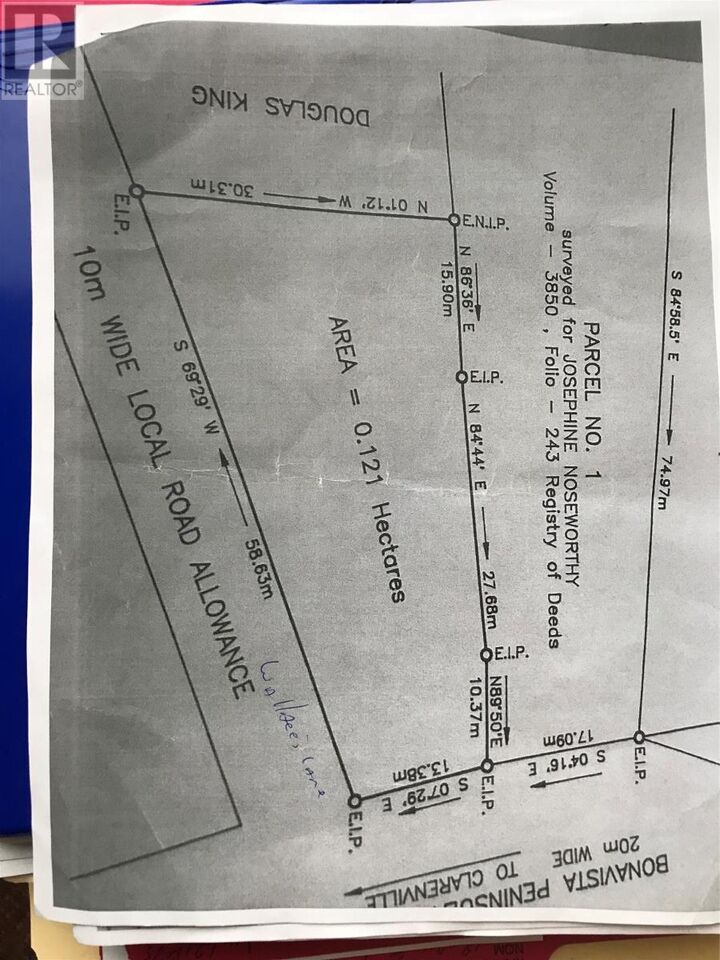 REALTOR®
DOUGLAS KING
PARCEL NO. 1
surveyed for JOSEPHINE NOSEWORTHY
Volume - 3850 , Folio - 243 Registry of Deeds
S 84°58.5' E
74.97m
N 01°12' W
30.31m
E.I.P.
E.N.I.P.
N 86°36' E
15.90m
E.I.P.
N 84°44' E
27.68m
E.I.P.
N89°50'E
10.37m
E.I.P.
S 04°16' E
17.09m
E.I.P.
S 07°29' E
13.38m
E.I.P.
AREA = 0.121 Hectares
S 69°29' W
58.63m
10m WIDE LOCAL ROAD ALLOWANCE
Lane
BONAVISTA PENINSU
20m WIDE
TO CLARENVILLE
NOM